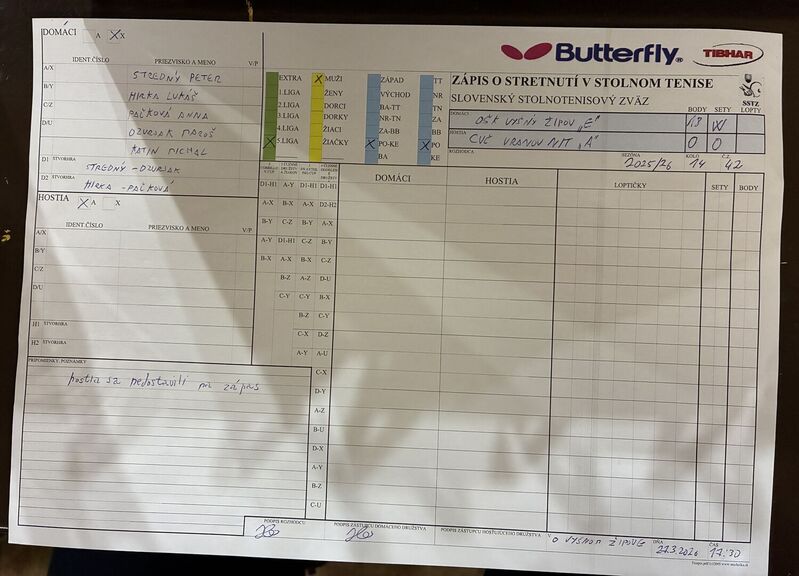 DOMÁCI A X X
IDENT.ČÍSLO PRIEZVISKO A MENO V/P
A/X STREDNÝ PETER
B/Y HIRKA LUKÁŠ
C/Z PAČKOVÁ ANNA
D/U DZURJAK MAROŠ
KATIN MICHAL
D1 ŠTVORHRA STREDNÝ - DZURJAK
D2 HIRKA - PAČKOVÁ
HOSTIA X A X
IDENT ČÍSLO PRIEZVISKO A MENO V/P
A/X
B/Y
C/Z
D/U
H1 ŠTVORHRA
H2 ŠTVORHRA
PRIPOMIENKY, POZNÁMKY
hostia sa nedostavili na zápas
Butterfly TIBHAR
EXTRA X MUŽI ZÁPAD TT
1.LIGA ŽENY VÝCHOD NR
2.LIGA DORCI BA-TT TN
3.LIGA DORKY NR-TN ZA
4.LIGA ŽIACI ZA-BB BB
X 5.LIGA ŽIAČKY X PO-KE X PO
BA KE
ZÁPIS O STRETNUTÍ V STOLNOM TENISE
SLOVENSKÝ STOLNOTENISOVÝ ZVÄZ
SSTZ
BODY SETY LOPTY
DOMÁCI OŠK VYŠNÝ ŽIPOV „E"
HOSTIA CVČ VRANOV N/T „A" 0 0
ROZHODCA SEZÓNA 2025/26 KOLO 14 Č.Z. 42
DOMÁCI HOSTIA LOPTIČKY SETY BODY
D1-H1 A-Y D1-H1 D1-H1
A-X B-X A-X D2-H2
B-Y C-Z B-Y A-X
A-Y D1-H1 C-Z B-Y
B-X A-X B-X C-Z
B-Z A-Z D-U
C-Y C-Y B-X
B-Z C-Y
C-X D-Z
A-Y A-U
C-X
D-Y
A-Z
B-U
D-X
A-Y
B-Z
C-U
PODPIS ROZHODCU PODPIS ZÁSTUPCU DOMÁCEHO DRUŽSTVA PODPIS ZÁSTUPCU HOSŤUJÚCEHO DRUŽSTVA V DŇA 22.3.2026 ČAS 17:30